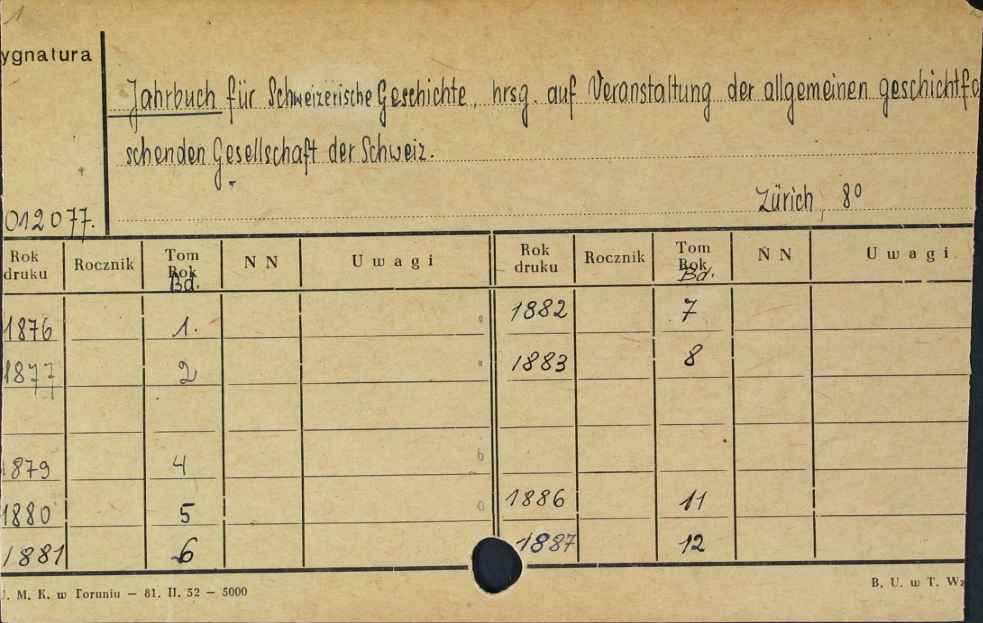 1
ygnatura
Jahrbuch für Schweizerische Geschichte, hrsg. auf Veranstaltung der allgemeinen geschichtfo
schenden Gesellschaft der Schweiz.
Zürich, 8º
012077.
Rok druku Rocznik Tom Rok Bd. NN Uwagi Rok druku Rocznik Tom Rok Bd. NN Uwagi
1876 1. 1882 7
1877 2 1883 8
1879 4 b
1880 5 1886 11
1881 6 1887 12
U. M. K. w Toruniu — 81. II. 52 — 5000 B. U. w T. Wz